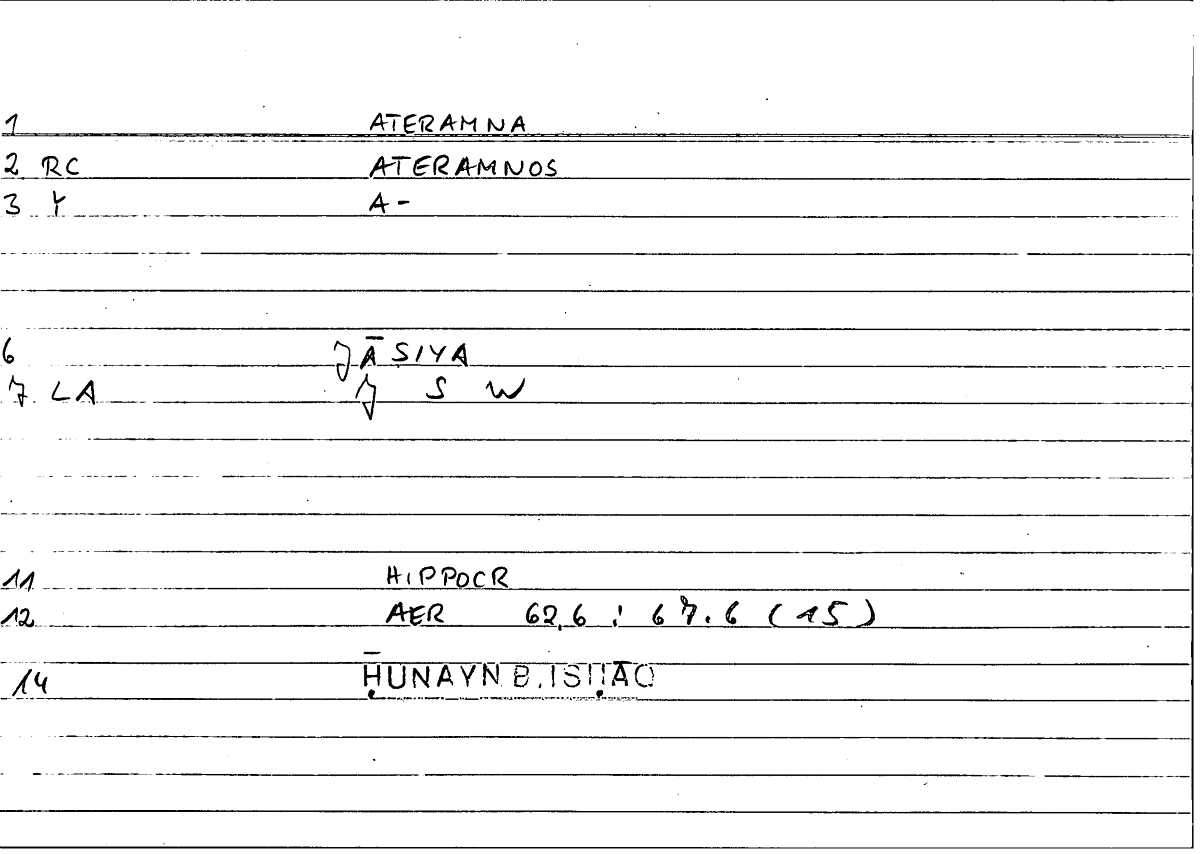 1 ATERAMNA
2 RC ATERAMNOS
3 Y A-
6 JĀSIYA
7 LA J S W
11 HIPPOCR
12 AER 62,6 : 67.6 (15)
14 ḤUNAYN B. ISḤĀQ